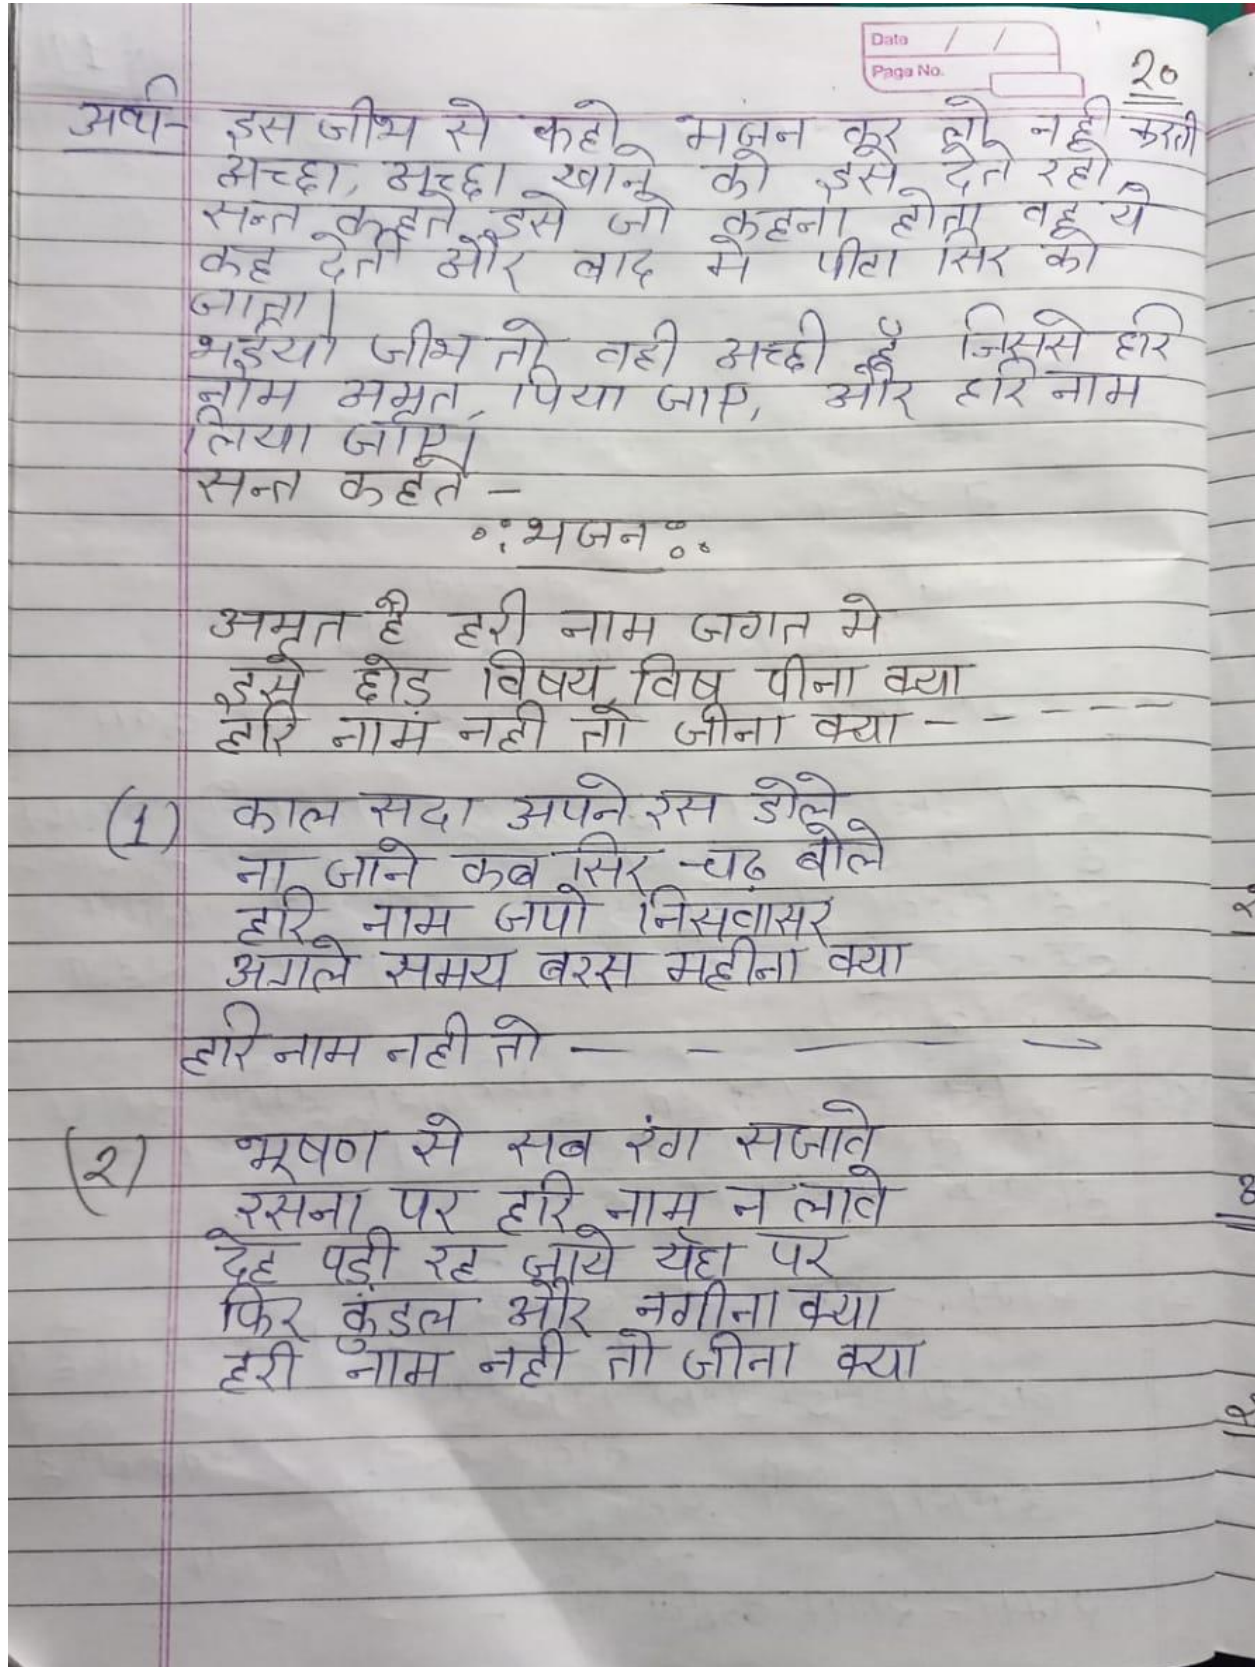 Date / /
Page No.
२०
अर्थ- इस जीभ से कहो भजन कर लो नही करती
अच्छा, अच्छा खाने को इसे देते रहो
सन्त कहते इसे जो कहना होता वह ये
कह देती और बाद मे पीटा सिर को
जाता।
भईया जीभ तो वही अच्छी है जिससे हरि
नाम अमृत पिया जाए, और हरि नाम
लिया जाए।
सन्त कहते -
भजन
अमृत है हरी नाम जगत मे
इसे छोड़ विषय विष पीना क्या
हरि नाम नही तो जीना क्या - - - - - -
(1) काल सदा अपने रस डोले
ना जाने कब सिर चढ़ बोले
हरि नाम जपो निसवासर
अगले समय बरस महीना क्या
हरि नाम नही तो - - - -
(२) भूषण से सब रंग सजावे
रसना पर हरि नाम न लावे
देह पड़ी रह जाये यँहा पर
फिर कुंडल और नगीना क्या
हरी नाम नही तो जीना क्या